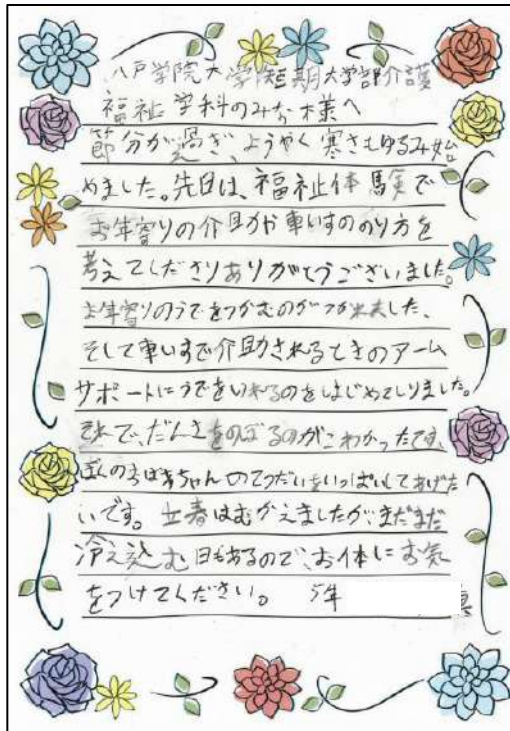 八戸学院大学短期大学部介護
福祉学科のみな様へ
節分が過ぎ、ようやく寒さもゆるみ始
めました。先日は、福祉体験で
お年寄りの介助や車いすののり方を
考えてくださりありがとうございました。
お年寄りのうでをつかむのが
そして車いすで介助されるときのアーム
サポートにうでをいれるのをはじめてしりました。
それで、だんさをのぼるのがこわかったです、
ぼくのおばあちゃんのてつだいをいっぱいしてあげた
いです。立春はむかえましたが、まだまだ
冷え込む日もあるので、お体にお気
をつけてください。 5年